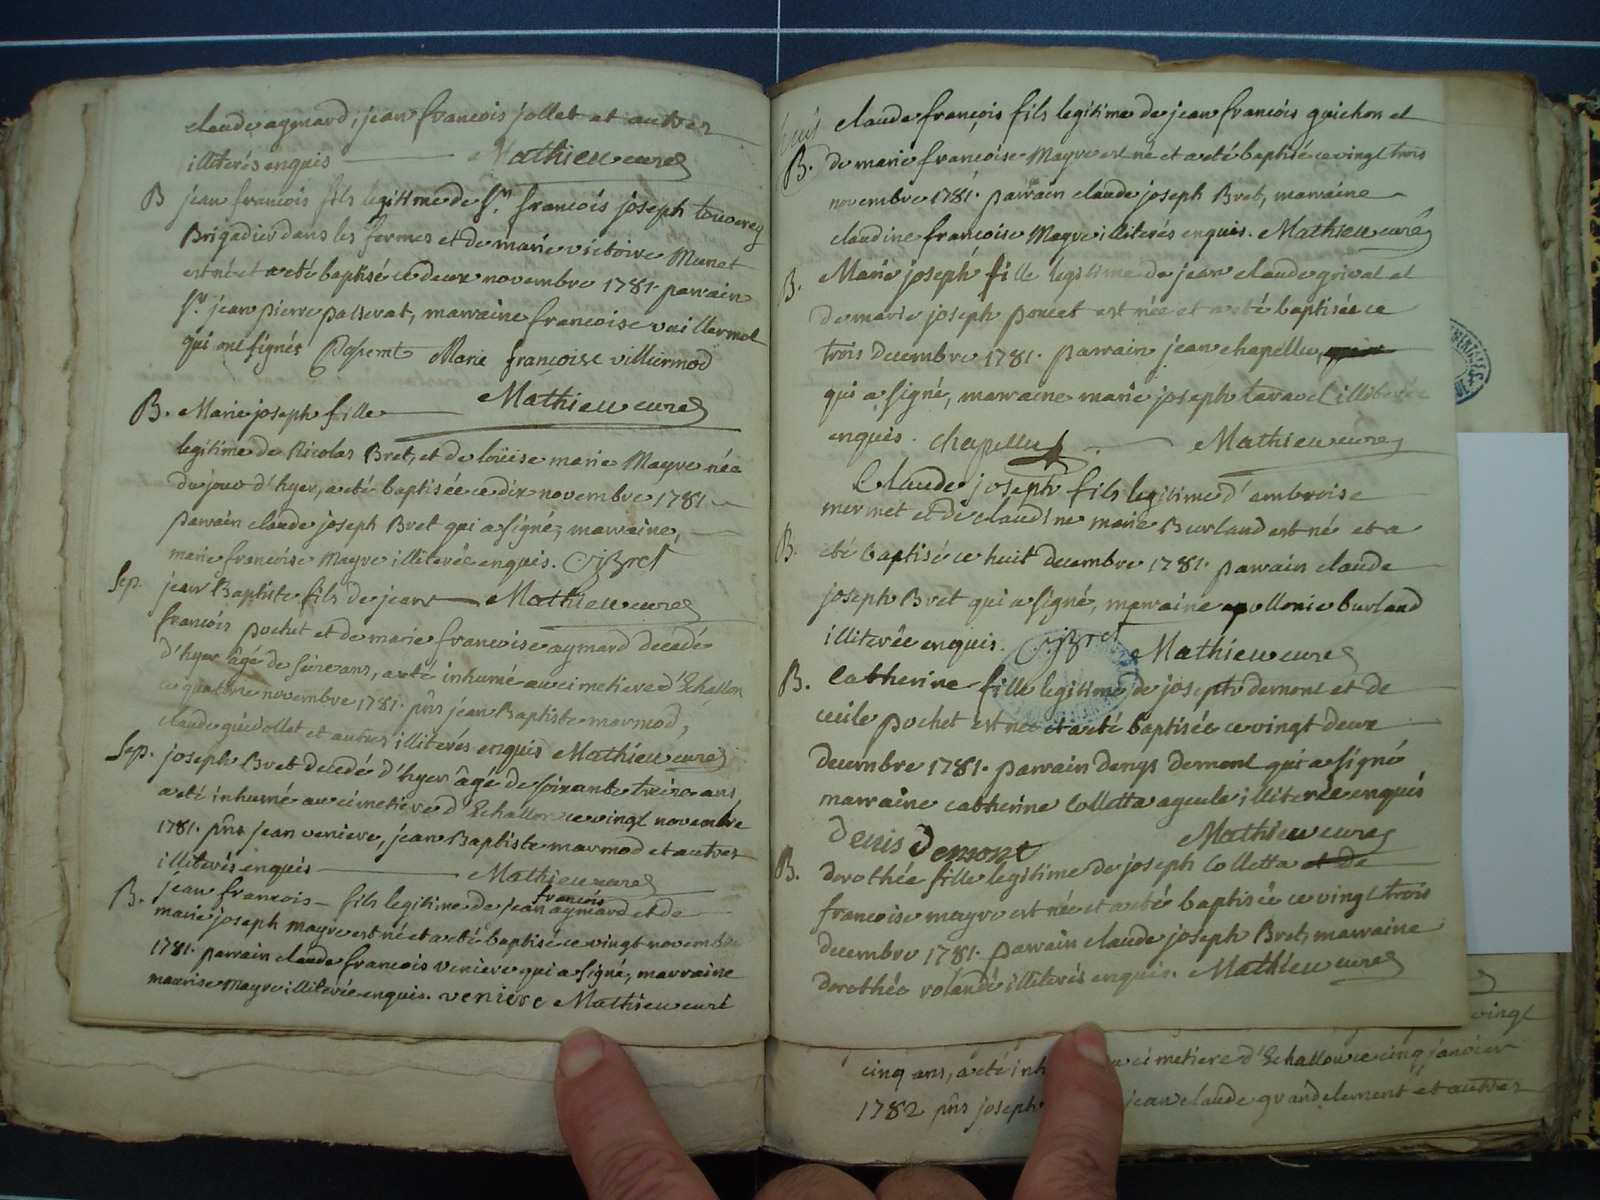 claude aymard; jean francois jollet et autres
illiterés enquis Mathieu curé
B jean francois fils legitime de Sr. francois joseph touverey
Brigadier dans les fermes et de marie victoire Munet
est né et a eté baptisé ce deux novembre 1781. parrain
Sr. jean pierre passerat, marraine francoise vuillermol
qui ont signés Passerat Marie francoise villiermod
Mathieu curé
B. Marie joseph fille
legitime de Nicolas Bret, et de loüise marie Mayre née
du jour d'hyer, a eté baptisée ce dix novembre 1781
parrain claude joseph Bret qui a signé, marraine,
marie francoise Mayre illiterée enquis. CJBret
Sep. jean Baptiste fils de jean Mathieu curé
francois pochet et de marie francoise aymard decedé
d'hyer âgé de seize ans, a eté inhumé au cimetiere d'Echallon
ce quattre novembre 1781. pñs jean Baptiste marmod,
claude gui collet et autres illiterés enquis Mathieu curé
Sep. joseph Bret decedé d'hyer âgé de soixante treize ans
a eté inhumé au cimetiere d'Echallon ce vingt novembre
1781. pñs jean veniere, jean Baptiste marmod et autres
illiterés enquis Mathieu curé
B. jean francois fils legitime de jean francois aymard et de
marie joseph mayre est né et a eté baptisé ce vingt novembre
1781. parrain claude francois veniere qui a signé, marraine
maurise mayre illiterée enquis. veniere Mathieu curé
claude françois fils legitime de jean francois guichon et
B. de marie françoise Mayre est né et a eté baptisé ce vingt trois
novembre 1781. parrain claude joseph Bret, marraine
claudine francoise Mayre illiterés enquis. Mathieu curé
B. Marie joseph fille legitime de jean claude grivat et
de marie joseph poncet est née et a eté baptisée ce
trois decembre 1781. parrain jean chapellu,
qui a signé, marraine marie joseph tavavel illiterée
enquis. chapellu Mathieu curé
Claude joseph fils legitime d'ambroise
mermet et de claudine marie Burland est né et a
B. eté baptisé ce huit decembre 1781. parrain claude
joseph Bret qui a signé, marraine apollonie burland
illiterée enquis. CJBret Mathieu curé
B. Catherine fille legitime de joseph demont et de
cecile pochet est née et a eté baptisée ce vingt deux
decembre 1781. parrain denys demont qui a signé
marraine catherine Colletta ayeule illiterée enquis
Denis Demont Mathieu curé
B. dorothée fille legitime de joseph Colletta et de
francoise mayre est née et a eté baptisée ce vingt trois
decembre 1781. parrain claude joseph Bret, marraine
dorothée rolande illiterés enquis. Mathieu curé
vingt
cinq ans, a eté cimetiere d'Echallon ce cinq janvier
1782 pñs joseph jean claude grandclement et autres